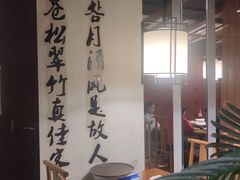 明月清风是故人
苍松翠竹真佳客